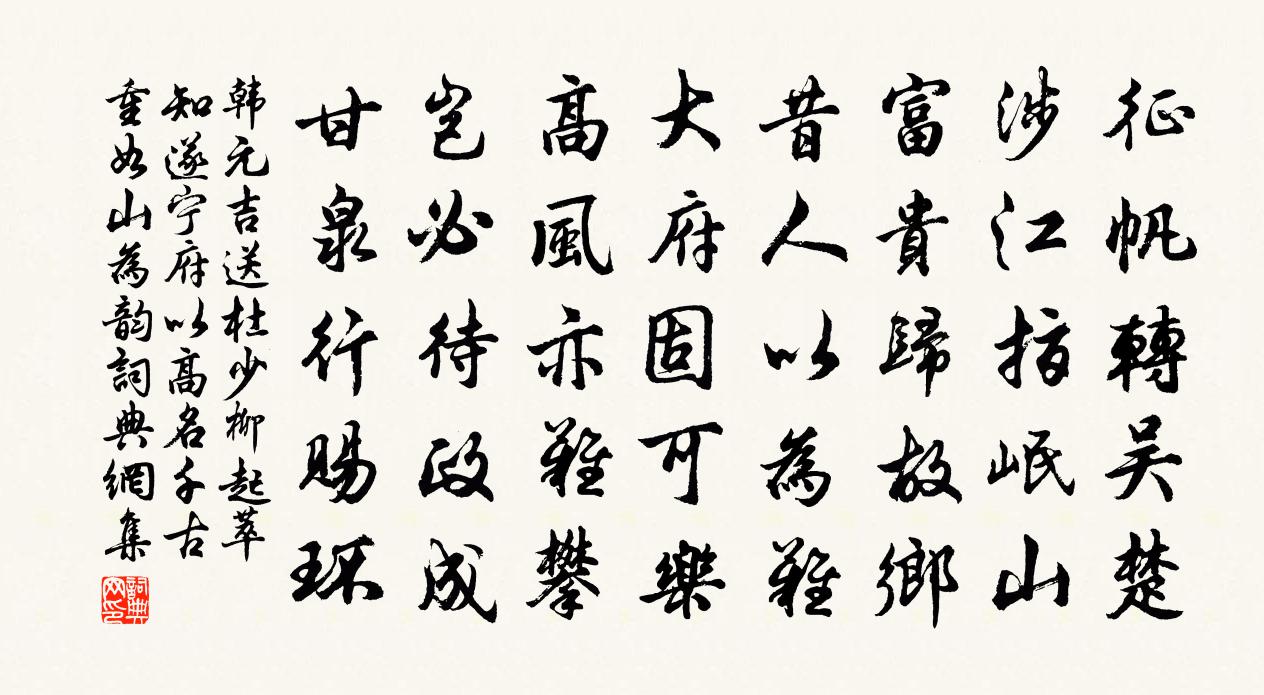 征帆轉吴楚
涉江指岷山
富貴歸故鄉
昔人以為難
大府固可樂
高風亦難攀
豈必待政成
甘泉行賜環
韩元吉送杜少柳起萃
知遂宁府以高名千古
重如山為韵詞典網集